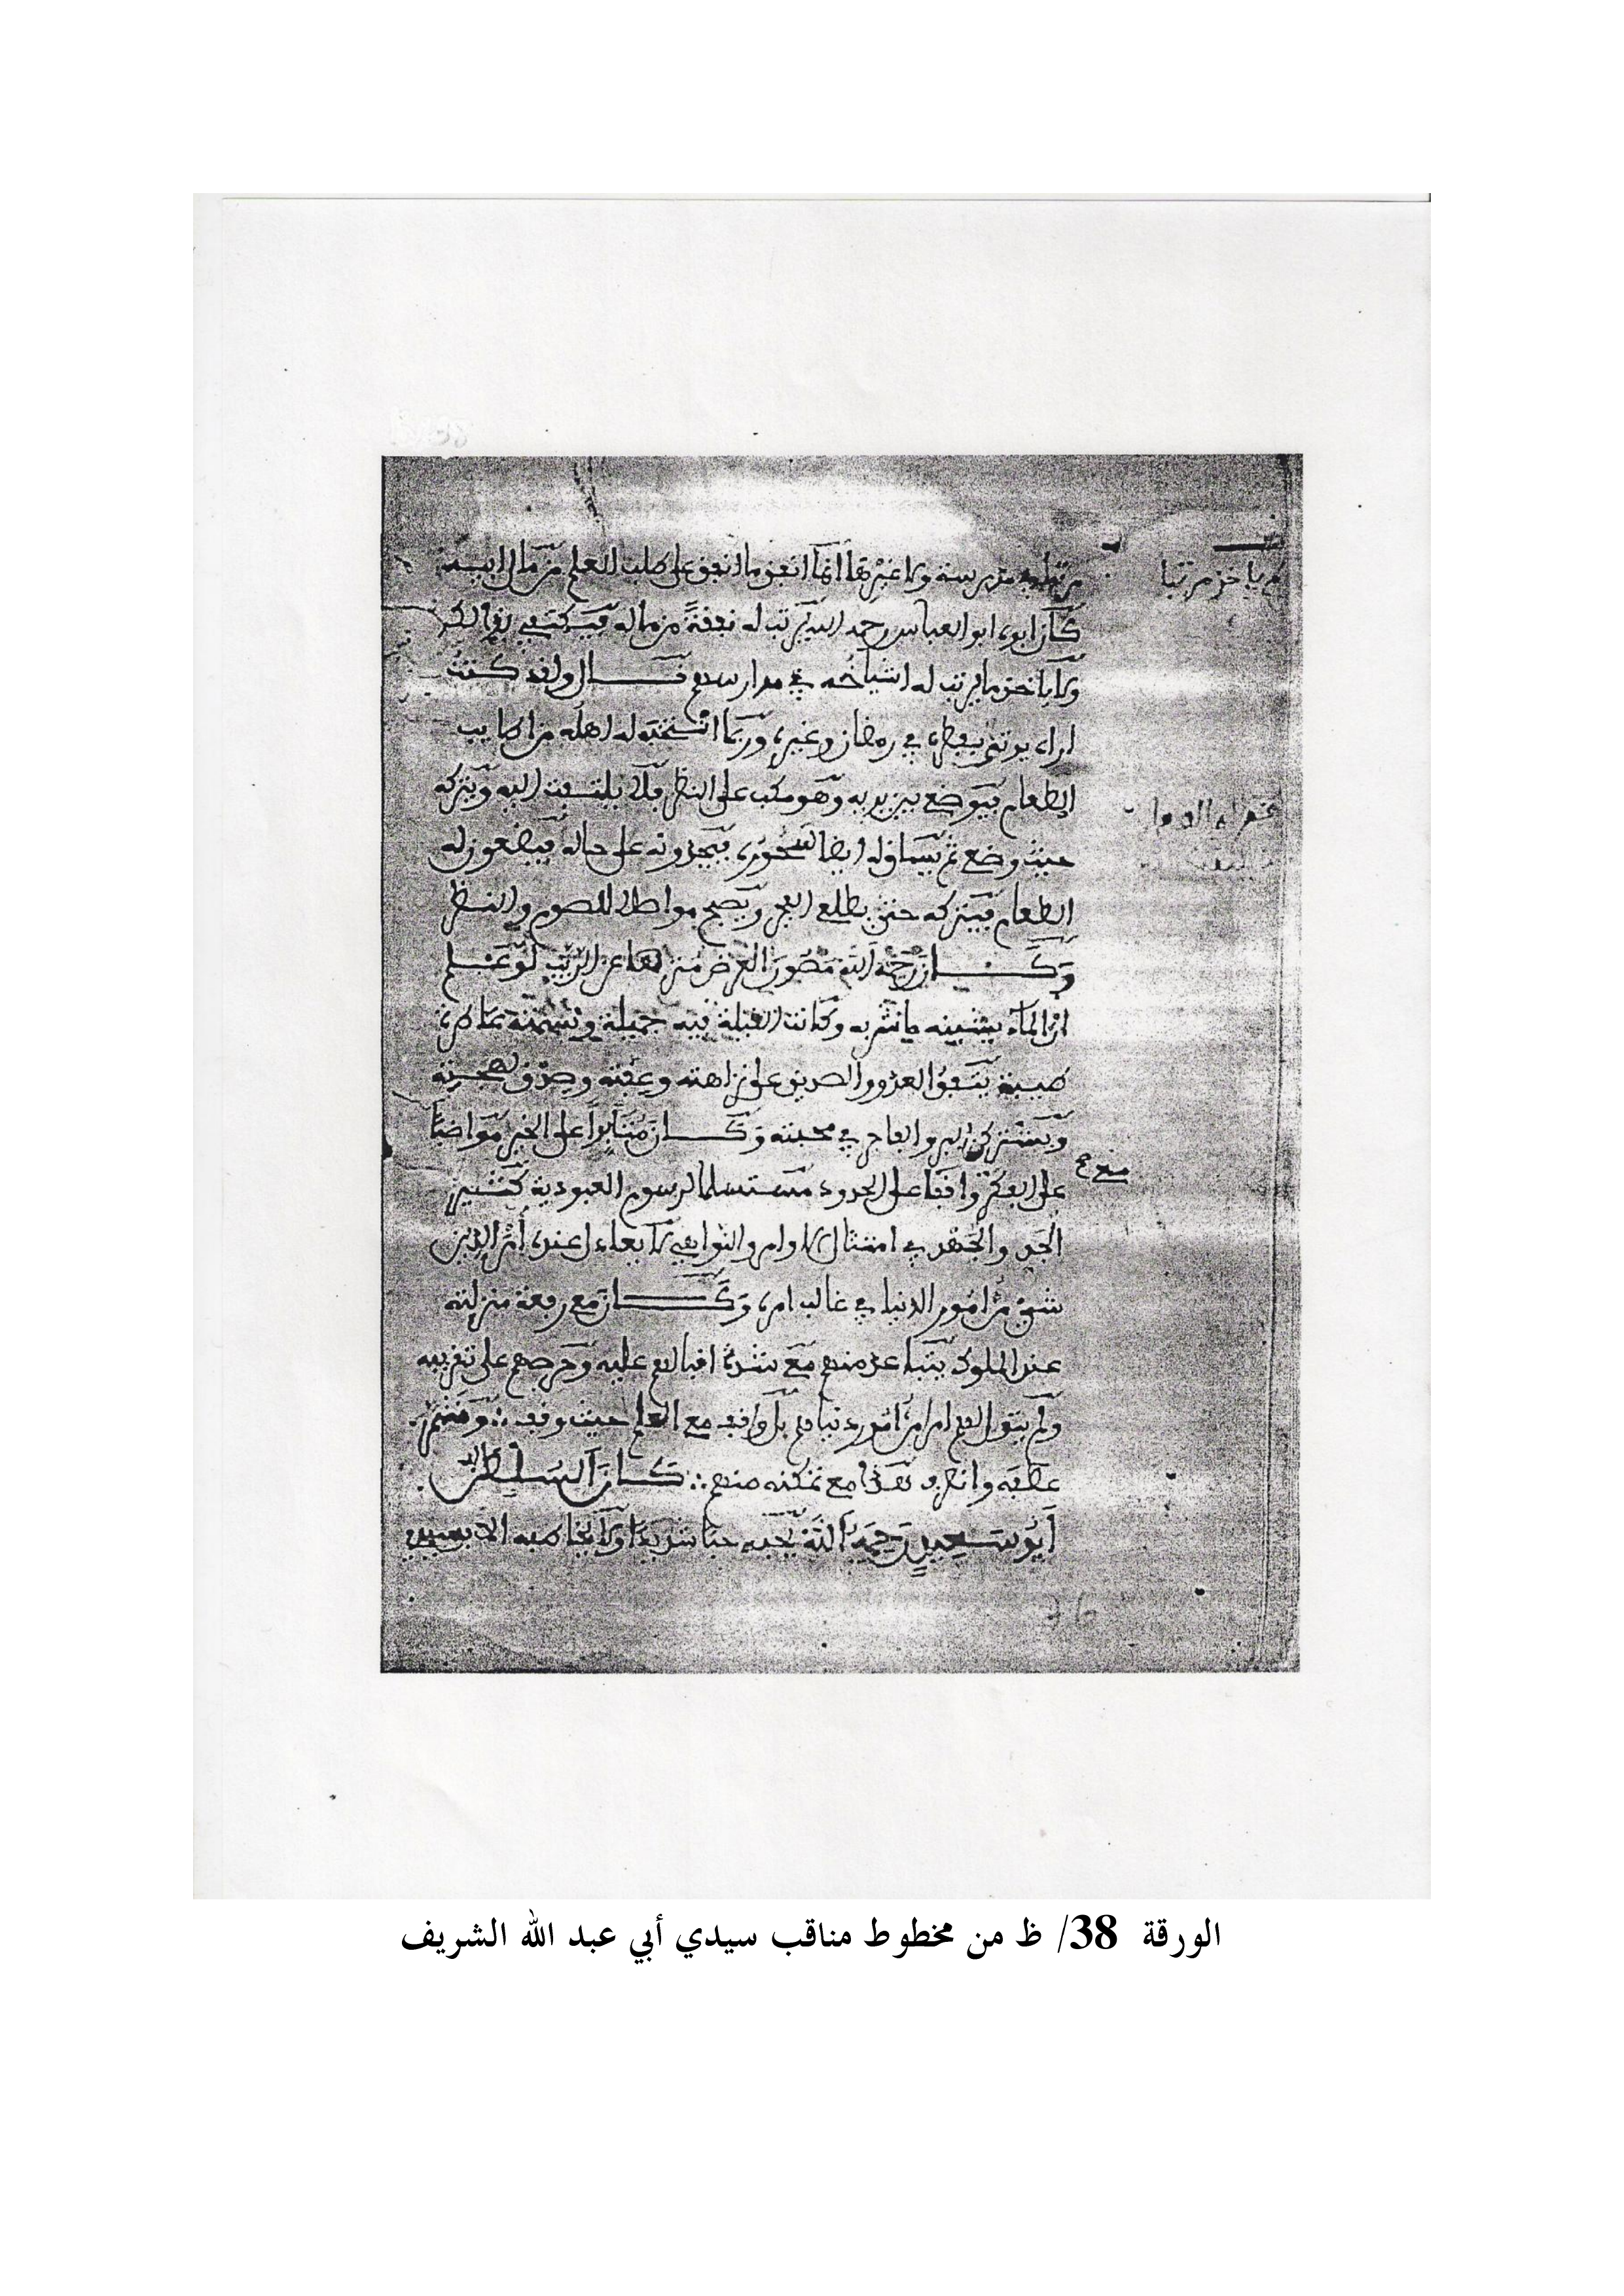 في مدرسة ولا غيرها انما انفق ما انفق على طلب العلم من مال ابيه
كان ابوه ابو العباس رحمه الله يرتب له نفقة من ماله
ولا ياخذ ما يرتب له اشياخه في مدارسهم قال ولقد كنت
اراه يوتى بفطره في رمضان وغيره وربما انتخبه له اهله من اطايب
الطعام فيوضع بين يديه وهو مكب على النظر فلا يلتفت اليه ويتركه
حيث وضع ثم يساق له ايضا السحور فيجدونه على حاله فيضعون له
الطعام فيتركه حتى يطلع الفجر ويصبح مواصلا للصوم والنظر
وكان رحمه الله مصون العرض منزها عن الريب لو علم
ان الماء يشينه ما شربه وكانت القبلة فيه جميلة
طيبة يتفق العدو والصديق على نزاهته وعفته وصدق لهجته
ويشترك البر والفاجر في محبته وكان مثابرا على الخير مواضبا
على الفكر واقفا على الحدود مستسلما لرسوم العبودية كثير
الجد والجهد في امتثال الاوامر والنواهي لا يعادل عنده امر الدين
شيء من امور الدنيا في غالب امره وكان مع رفعة منزلته
عند الملوك عنهم مع شدة اقبالهم عليه وحرصهم على تقريبه
ولم يتول لهم امرا من امور دنياهم بل واقف مع العلم حيث وقف
مع تمكنه منهم كان السلطان
ابو سعيد رحمه الله يحبه حبا شديدا ولا يخاطبه الا
لم ياخذ مرتبا
منهج
الورقة 38/ ظ من مخطوط مناقب سيدي أبي عبد الله الشريف